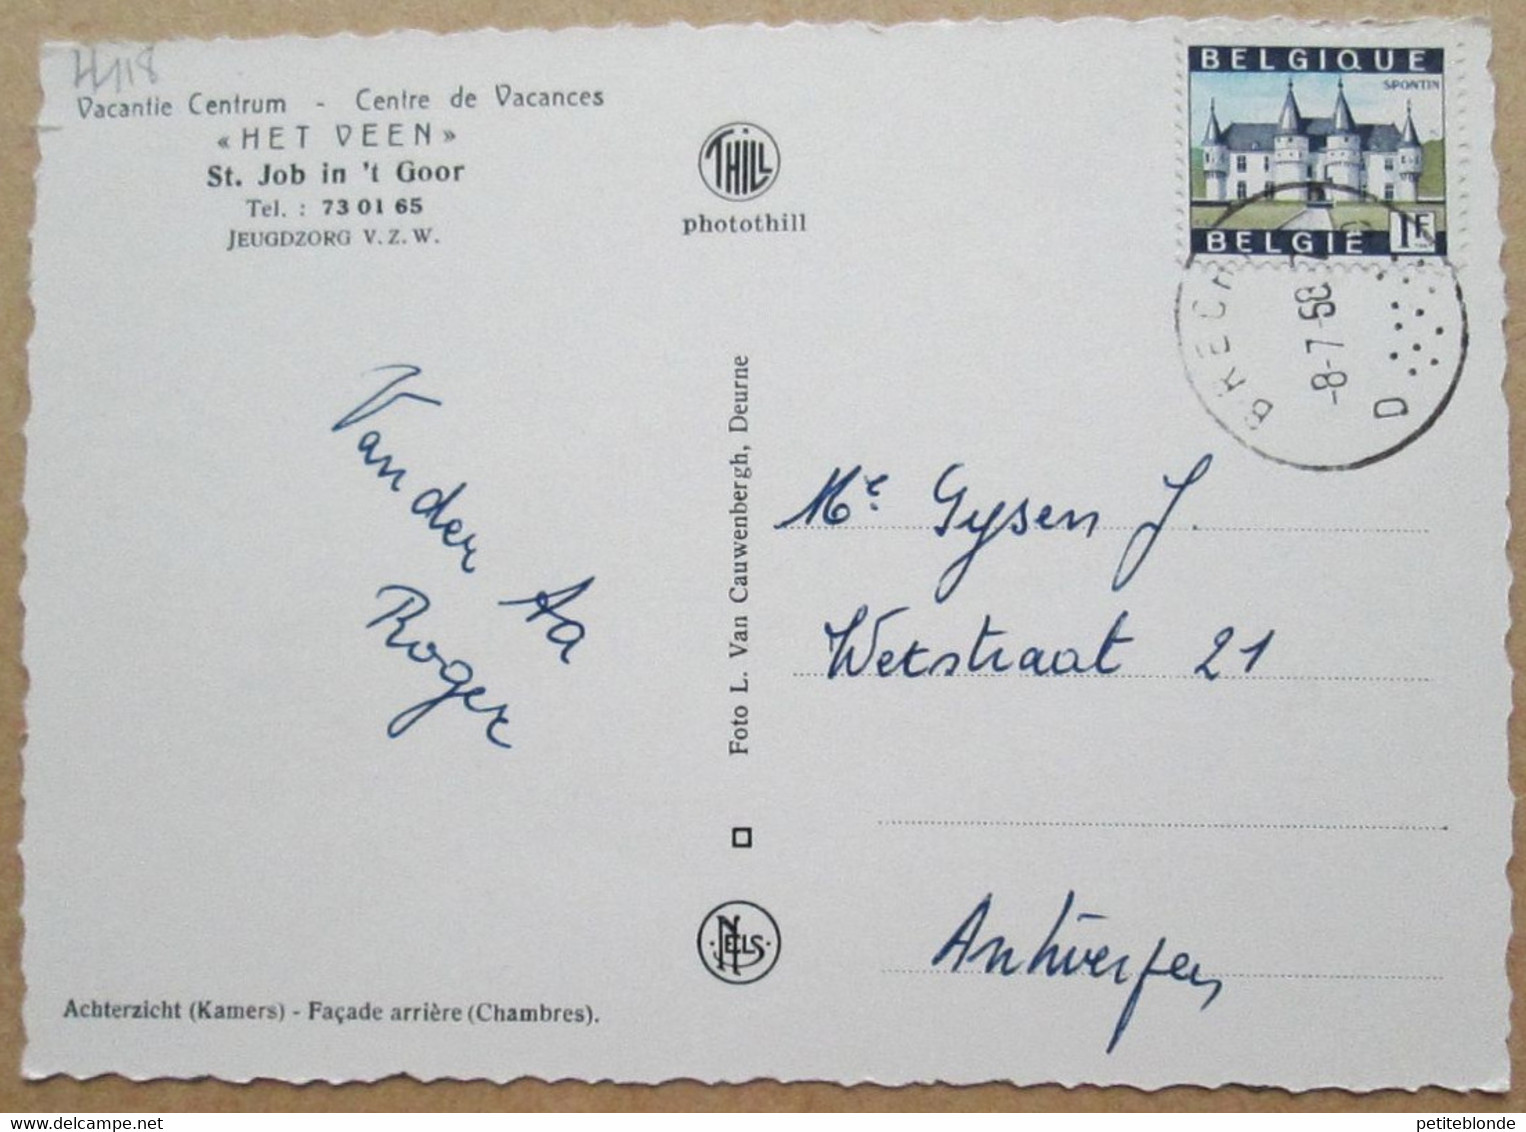 4418
Vacantie Centrum - Centre de Vacances
« HET VEEN »
St. Job in 't Goor
Tel. : 73 01 65
JEUGDZORG V. Z. W.
THILL
photothill
BELGIQUE
SPONTIN
BELGIË 1F
BRECH
-8-7-68
D
Van der Aa
Roger
Foto L. Van Cauwenbergh, Deurne
Mr. Gysen J.
Wetstraat 21
Antwerpen
NELS
Achterzicht (Kamers) - Façade arrière (Chambres).
petiteblonde